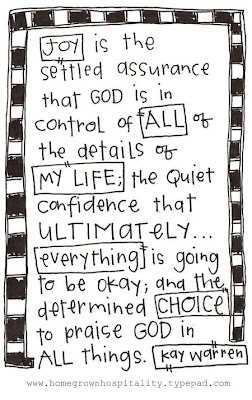 JOY is the
settled assurance
that GOD is in
control of ALL of
the details of
MY LIFE; the Quiet
confidence that
ULTIMATELY...
everything is going
to be okay; and the
determined CHOICE
to praise GOD in
ALL things. kay warren
www.homegrownhospitality.typepad.com